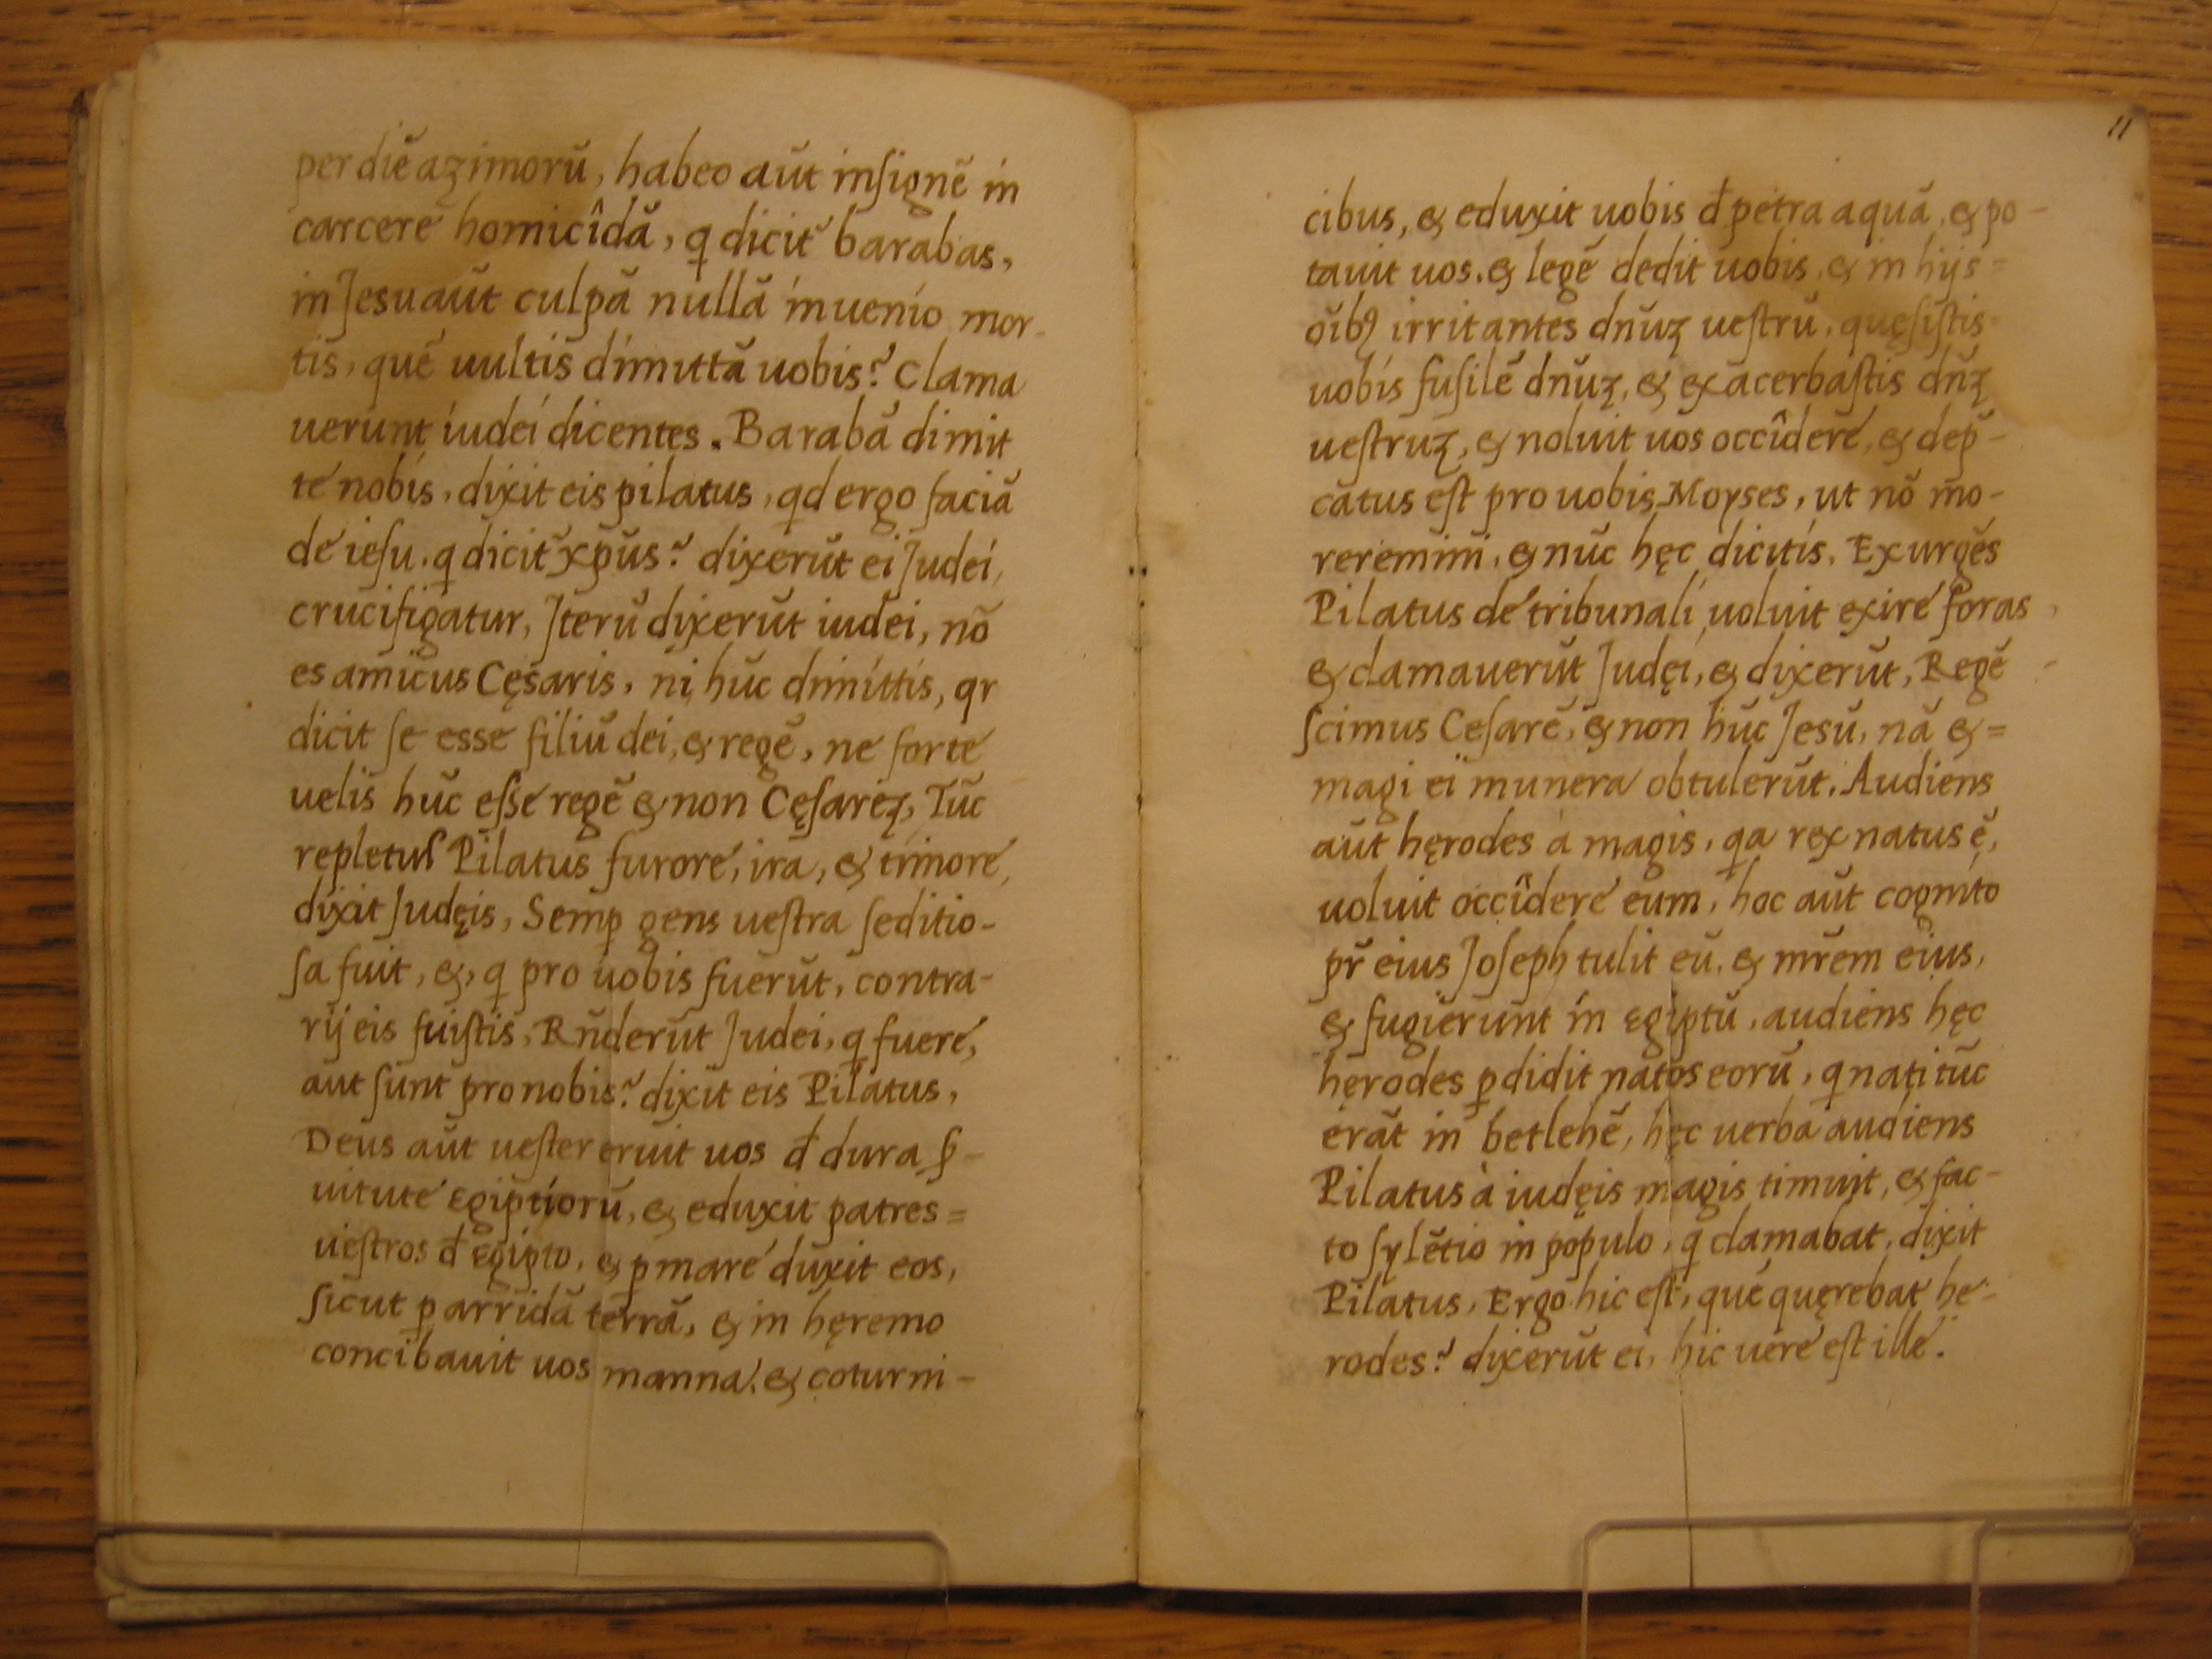 per diē azimorū, habeo aūt insignē in
carcere homicîdā, q dicit̃ barabas,
in Jesu aūt culpā nullā inuenio mor-
tis, quē uultis dimittā uobis? Clama
uerunt iudei dicentes. Barabā dimit
te nobis, dixit eis pilatus, qd ergo faciā
de iesu. q dicit̃ xp̄us? dixerūt ei Judei,
crucifigatur, Jterū dixerūt iudei, nō
es amicus Cęsaris, ni hūc dimittis, qr
dicit se esse filiū dei, & regē, ne forte
uelis hūc esse regē & non Cęsareʒ, Tūc
repletus Pilatus furore, ira, & timore,
dixit Judęis, Semꝑ gens uestra seditio-
sa fuit, &, q pro uobis fuerūt, contra-
rij eis fuistis, Rñderūt Judei, q fuere,
aut sunt pro nobis? dixit eis Pilatus,
Deus aūt uester eruit uos đ dura ẜ-
uitute egiptiorū, & eduxit patres=
uestros đ egipto, & ꝑ mare duxit eos,
sicut ꝑ arridā terrā, & in hęremo
concibauit uos manna, & coturni-
11
cibus, & eduxit uobis đ petra aquā, & po-
tauit uos, & legē dedit uobis, & in hijs=
oībꝫ irritantes dn̄uʒ uestrū, quęsistis
uobis fusilē dn̄uʒ, & exacerbastis dn̄ʒ
uestruʒ, & noluit uos occîdere, & dep̄-
catus est pro uobis Moyses, ut nō mo-
reremini, & nūc hęc dicitis. Exurgēs
Pilatus de tribunali uoluit exire foras,
& clamauerūt Judęi, & dixerūt, Regē
scimus Cesarē, & non hūc Jesū, nā &=
magi ei munera obtulerūt. Audiens
aūt hęrodes à magis, qa rex natus ē,
uoluit occîdere eum, hoc aūt cognito
pr̄ eius Joseph tulit eū, & mr̄em eius,
& fugierunt in egiptū, audiens hęc
hęrodes ꝑdidit natos eorū, q nati tūc
erāt in betlehē, hęc uerba audiens
Pilatus à iudęis magis timuit, & fac-
to sylētio in populo, q clamabat, dixit
Pilatus, Ergo hic est, quē quęrebat he-
rodes? dixerūt ei, hic uere est ille.